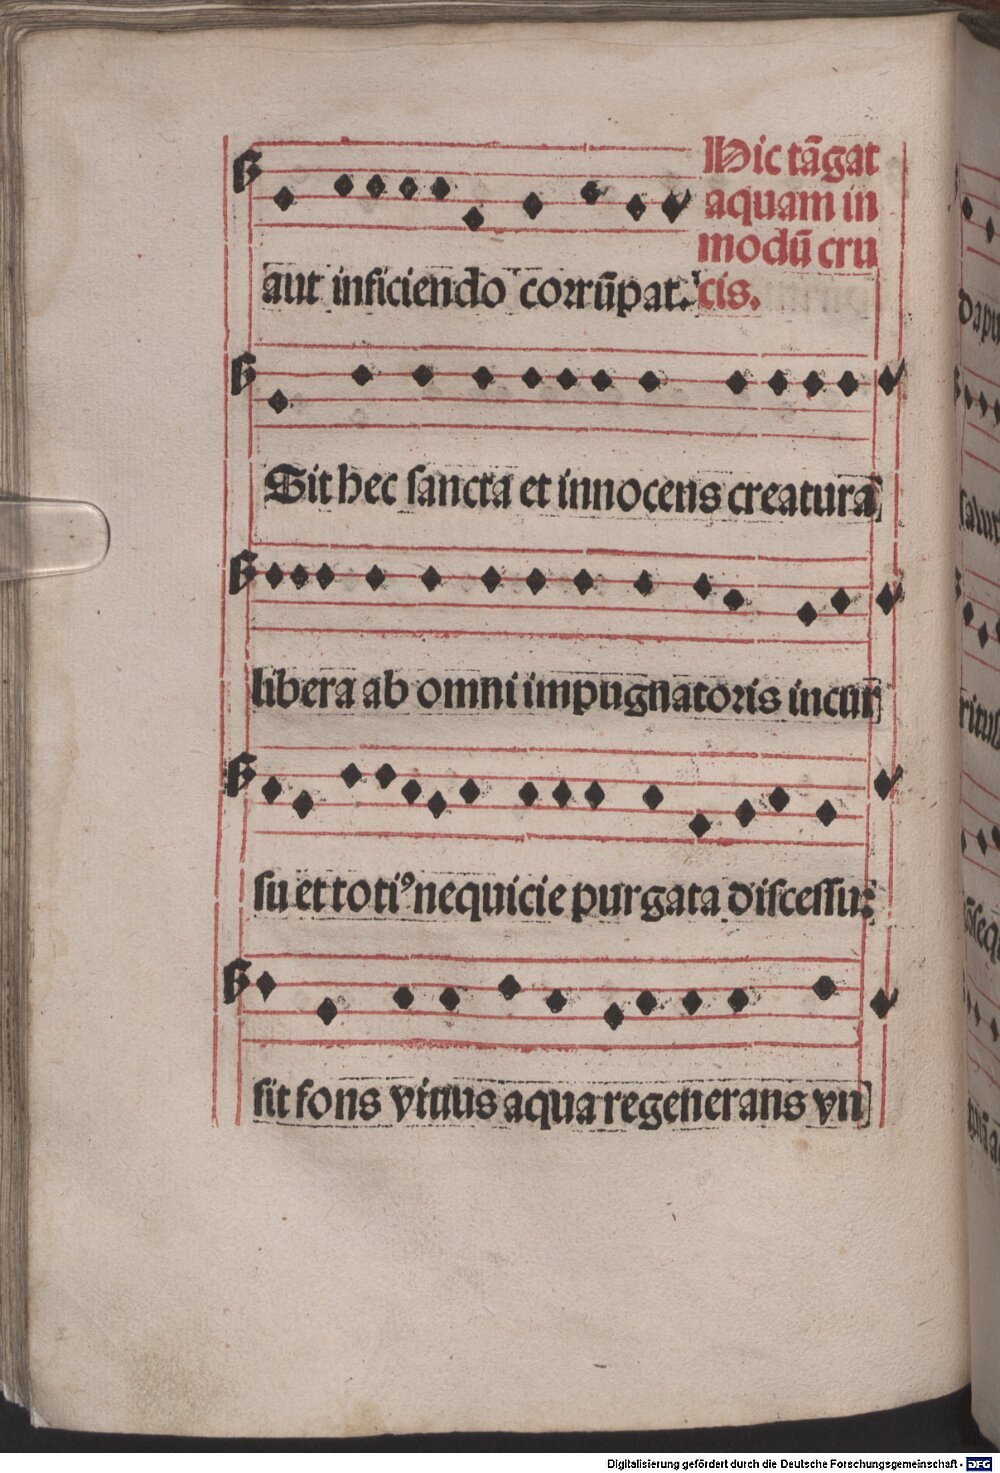 Hic tāgat
aquam in
modū cru
cis.
aut inficiendo corrūpat.
Sit hec sancta et innocens creatura
libera ab omni impugnatoris incur
su et toti⁹ nequicie purgata discessu:
sit fons viuus aqua regenerans vn
Digitalisierung gefördert durch die Deutsche Forschungsgemeinschaft - DFG